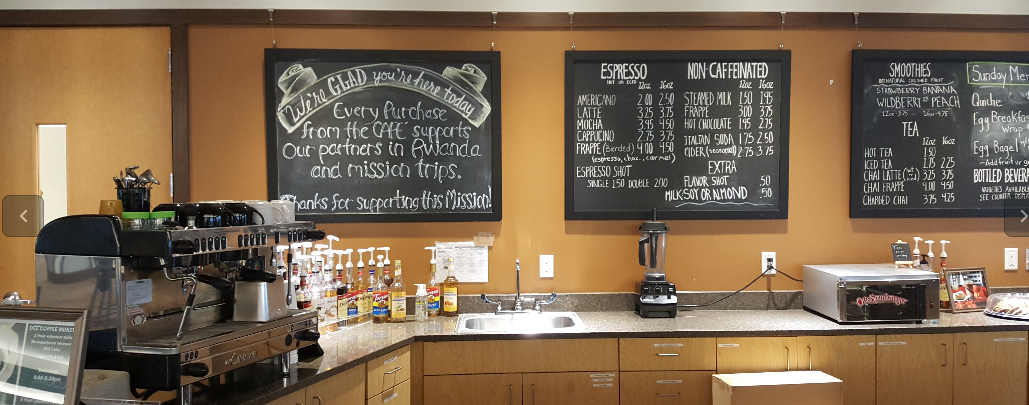 We're GLAD you're here today
Every Purchase
from the CAFE supports
Our partners in Rwanda
and mission trips.
Thanks for supporting this Mission!
ESPRESSO
HOT OR ICED
12oz 16oz
AMERICANO 2.00 2.50
LATTE 3.25 3.75
MOCHA 3.95 4.50
CAPPUCINO 3.25 3.75
FRAPPE (Blended) 4.00 4.50
(espresso, choc., carmel)
ESPRESSO SHOT
SINGLE 1.50 DOUBLE 2.00
NON-CAFFEINATED
12oz 16oz
STEAMED MILK 1.50 1.95
FRAPPE 3.00 3.75
HOT CHOCOLATE 1.95 2.75
ITALIAN SODA 1.75 2.50
CIDER (seasonal) 2.75 3.75
EXTRA
FLAVOR SHOT .50
MILK: SOY OR ALMOND .50
SMOOTHIES
STRAWBERRY BANANA
WILDBERRY OR PEACH
12oz-3.75 16oz-4.75
TEA
12oz 16oz
HOT TEA 1.50
ICED TEA 1.75 2.25
CHAI LATTE 3.25 3.75
CHAI FRAPPE 4.00 4.50
CHARGED CHAI 3.75 4.25
Sunday Me
Quiche
Egg Breakfas
Wrap
Egg Bagel
Add fruit or
BOTTLED BEVERA
VARIETIES AVAILABL
SEE COUNTER
DCC COFFEE MINIST
Otis Spunkmeyer